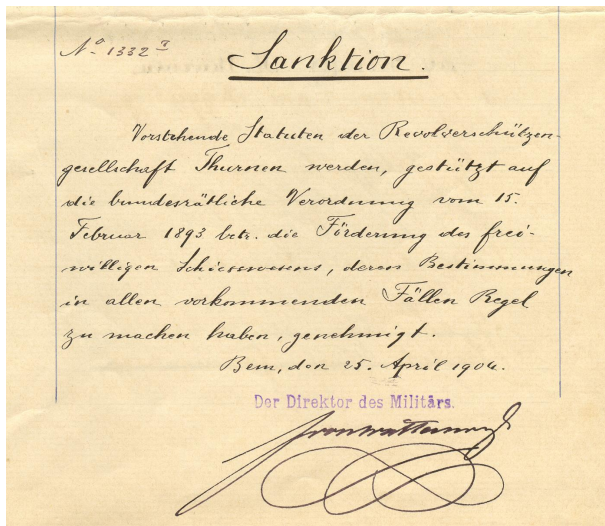 No 1332
Sanktion.
Vorstehende Statuten der Revolverschützen-
gesellschaft Thurnen werden, gestützt auf
die bundesrätliche Verordnung vom 15.
Februar 1893 betr. die Förderung des frei-
willigen Schiesswesens, deren Bestimmungen
in allen vorkommenden Fällen Regel
zu machen haben, genehmigt.
Bern, den 25. April 1904.
Der Direktor des Militärs.